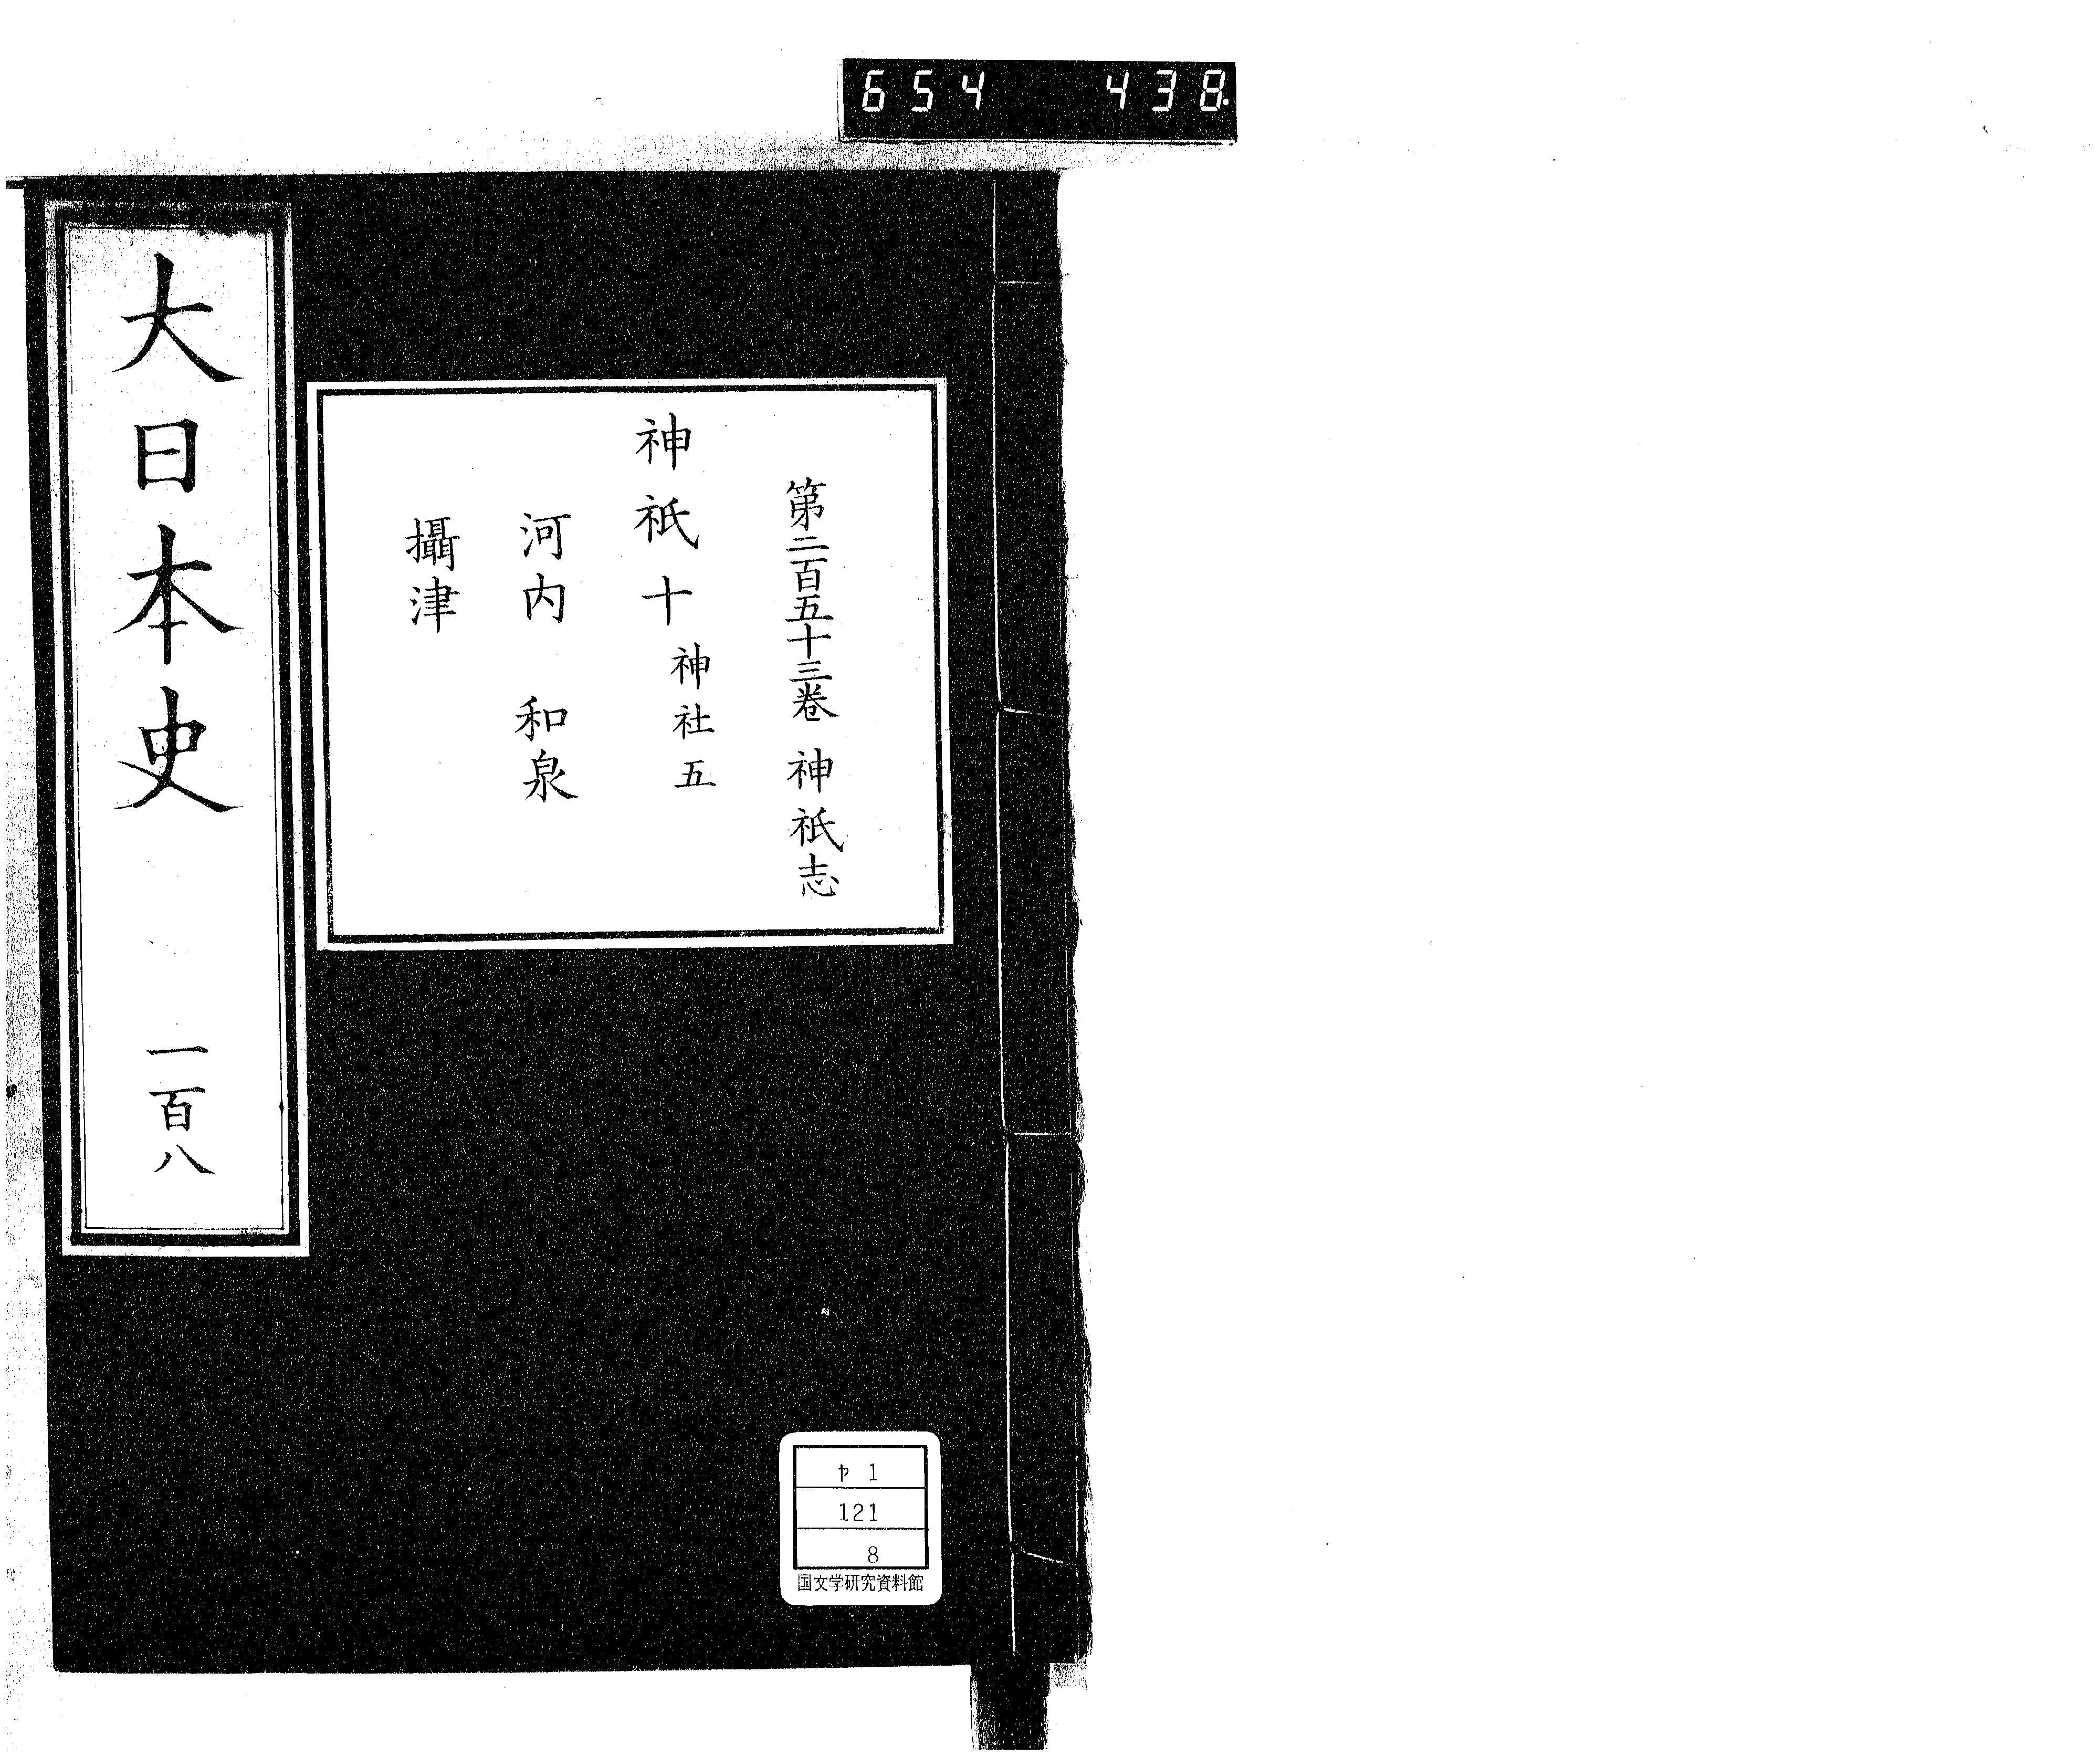 654 438
第二百五十三巻 神祇志
神祇十 神社五
河内 和泉
攝津
大日本史 一百八
ヤ1
121
8
国文学研究資料館